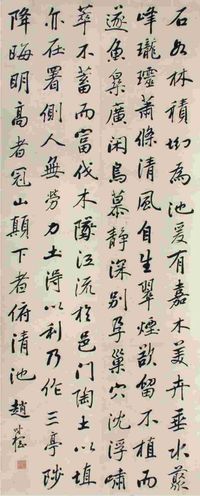 石如林積坳為池爰有嘉木美卉垂水藂
峰瓏蕭條清風自生翠煙欲留不植而
遂魚樂廣閑鳥慕靜深別孕巢穴沈浮嘯
萃不蓄而富伐木墜江流於邑門陶土以埴
亦在署側人無勞力土得以利乃作三亭陟
降晦明高者冠山顛下者俯清池 趙